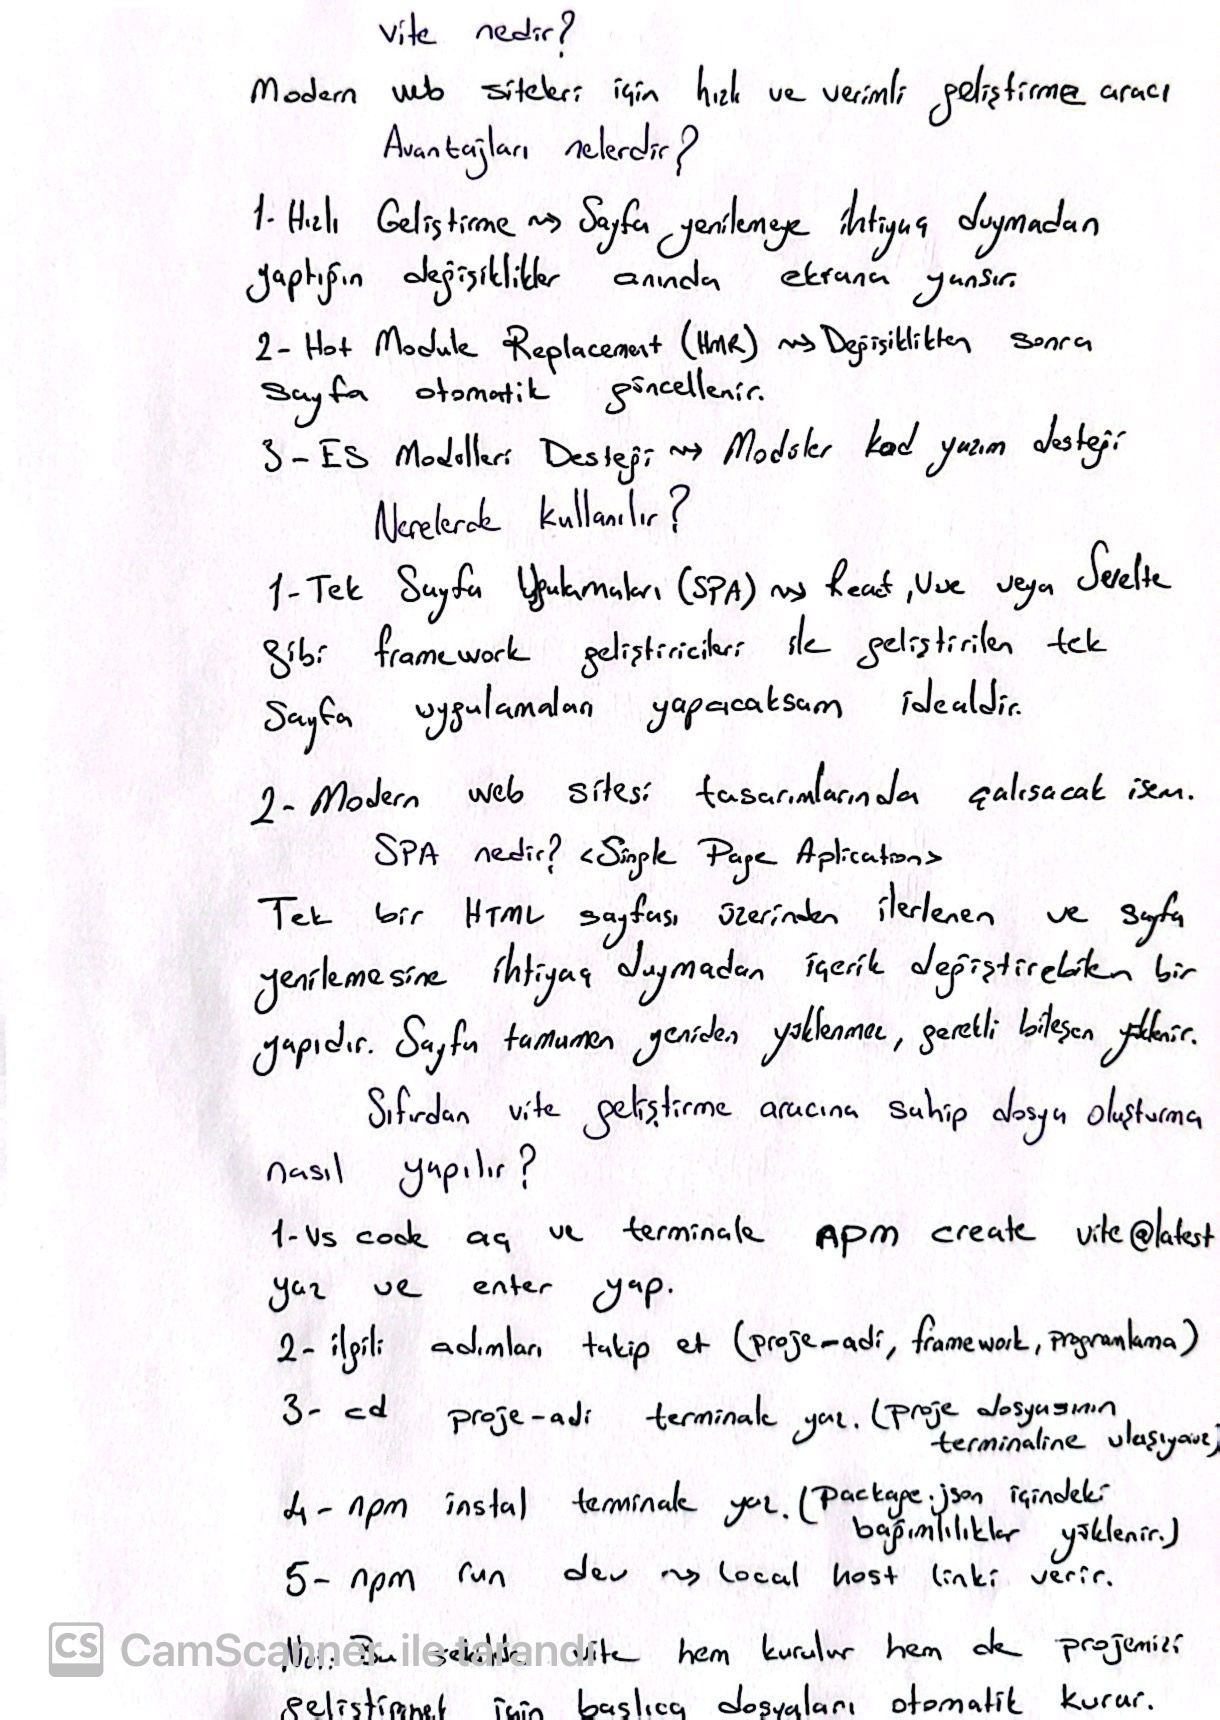 vite nedir?
Modern web siteleri için hızlı ve verimli geliştirme aracı
Avantajları nelerdir?
1- Hızlı Geliştirme ⇝ Sayfa yenilemeye ihtiyaç duymadan
yaptığın değişiklikler anında ekrana yansır.
2- Hot Module Replacement (HMR) ⇝ Değişiklikten sonra
sayfa otomatik güncellenir.
3- ES Modülleri Desteği ⇝ Modüler kod yazım desteği
Nerelerde kullanılır?
1- Tek Sayfa Uygulamaları (SPA) ⇝ React, Vue veya Svelte
gibi framework geliştiricileri ile geliştirilen tek
Sayfa uygulamaları yapacaksam idealdir.
2- Modern web sitesi tasarımlarında çalışacak isem.
SPA nedir? <Single Page Aplication>
Tek bir HTML sayfası üzerinden ilerlenen ve sayfa
yenilemesine ihtiyaç duymadan içerik değiştirebilen bir
yapıdır. Sayfa tamamen yeniden yüklenmez, gerekli bileşen yüklenir.
Sıfırdan vite geliştirme aracına sahip dosya oluşturma
nasıl yapılır?
1- Vs code aç ve terminale npm create vite@latest
yaz ve enter yap.
2- ilgili adımları takip et (proje-adi, framework, programlama)
3- cd proje-adi terminale yaz. (proje dosyasının
terminaline ulaşıyoruz)
4- npm instal terminale yaz. (package.json içindeki
bağımlılıklar yüklenir.)
5- npm run dev ⇝ Local host linki verir.
Not: Bu şekilde vite hem kurulur hem de projemizi
geliştirmek için başlıca dosyaları otomatik kurar.
CS CamScanner ile tarandı